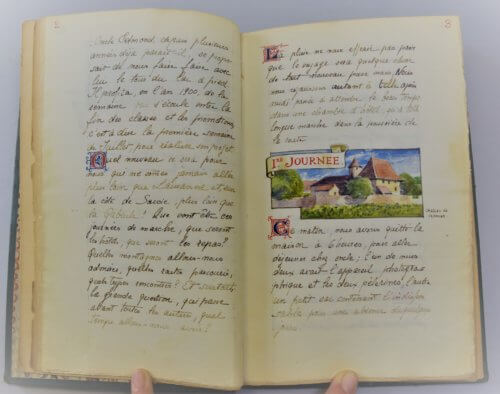 2
Oncle Edmond, depuis plusieurs
années déjà paraît-il, se propo-
sait de nous faire faire avec
lui le tour du lac à pied.
Il choisira, en l'an 1900, de la
semaine qui s'écoule entre la
fin des classes et les promotions
c'est à dire la première semaine
de Juillet pour réaliser son projet.
Quel nouveau ce sera pour
nous qui ne sommes jamais allés
plus loin que Lausanne et, sur
la côte de Savoie, plus loin que
la Belotte! Que vont être ces
journées de marche, que seront
les hôtels, que seront les repas?
Quelles montagnes allons-nous
admirer, quelles routes parcourir,
quels types rencontrer? Et surtout
la grande question, qui passe
avant toutes les autres, quel
temps allons-nous avoir?
3
La pluie ne nous effraie pas parce
que le voyage sera quelque chose
de tout nouveau pour nous. Nous
nous réjouissons autant à
aussi parce à attendre le beau temps
dans une chambre d'hôtel, qu'à telle
longue marche dans la poussière de
la route.
1RE JOURNÉE
Ce matin, nous avons quitté la
maison à 6 heures, puis allés
déjeuner chez ; l'un de nous
deux avait l'appareil photogra-
phique et les deux pèlerines, l'autre
un petit sac contenant l'indispen-
sable pour une absence de quelques
jours.